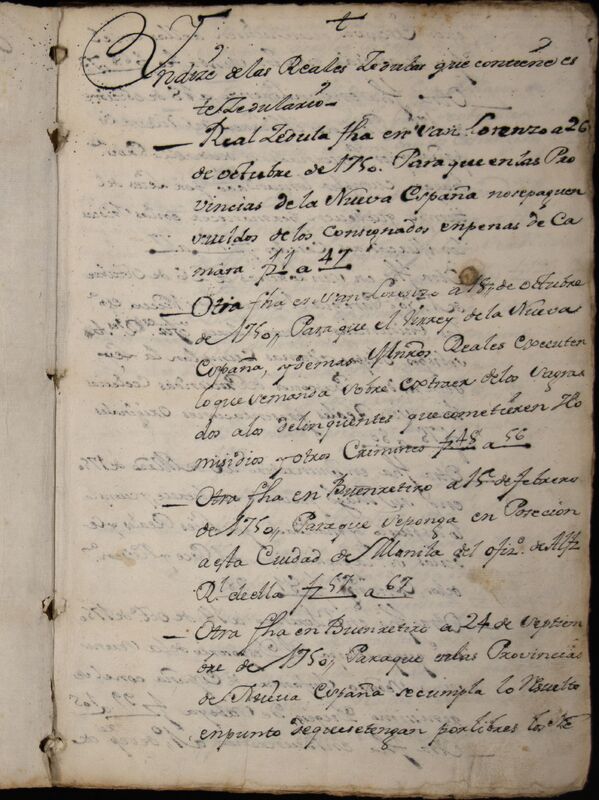 Yndize de las Reales Zedulas que contiene es
te Zedulario
Real Zedula fha en San Lorenzo a 26
de octubre de 1750. Para que en las Pro
vincias de la Nueva España no se paguen
sueldos de los Consignados en penas de Ca
mara f 11 a 47
Otra fha en San Lorenzo a 18 de octubre
de 1750,, Para que el Virrey de la Nueva
España, y demas Mnros Reales executen
lo que se manda sobre extraer de los Sagra
dos a los delinquentes que cometieren Ho
misidios y otros Crimines f 48 a 56
Otra fha en Buenretiro a 15 de febrero
de 1750,, Para que se ponga en Posecion
a esta Ciudad de Manila del ofizo. de Alfz
Rl. de ella f 57 a 67
Otra fha en Buenretiro a 24 de Septiem
bre de 1750,, Para que en las Provincias
de Nueva España se cumpla lo resuelto
en punto de que se tengan por libres los Ne